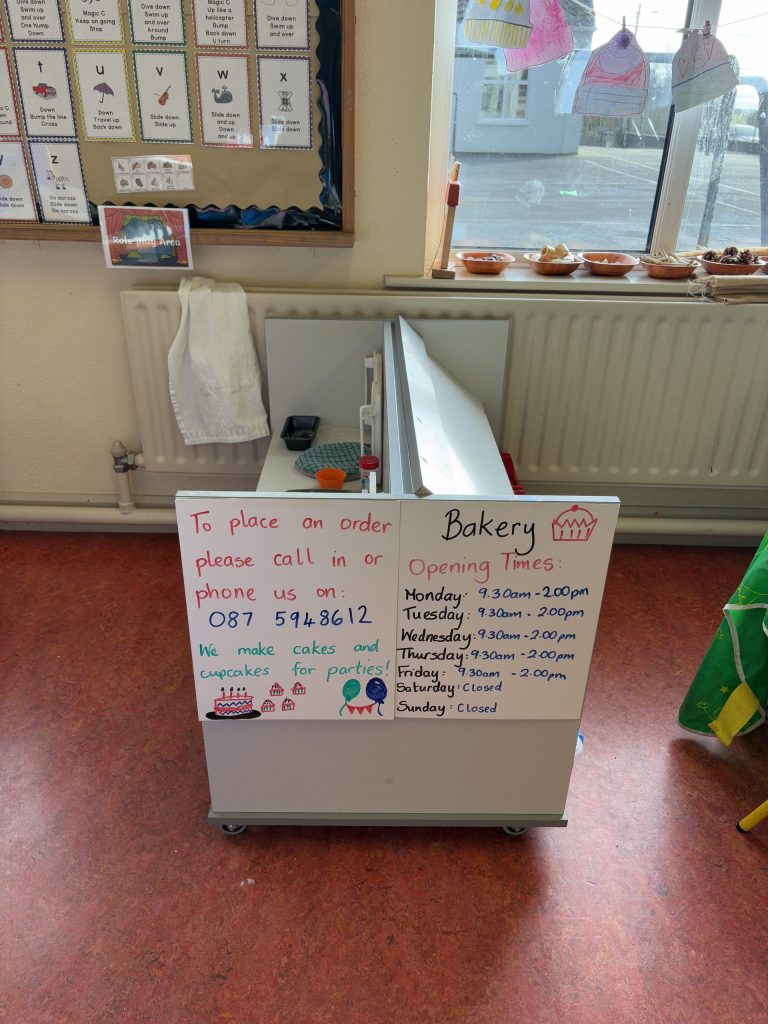 Dive down
Swim up
and over
One hump
Down
Magic C
Keep on going
Stop
Dive down
Swim up
and over
Around
Bump
Magic C
Up like a
helicopter
Bump
Back down
U turn
Dive down
Swim up
and over
Magic C
t
Down
Bump the line
Cross
u
Down
Travel up
Back down
v
Slide down
Slide up
w
Slide down
and up
Down
and up
x
Slide down
Slide down
z
Go across
Slide down
Go across
Role play Area
To place an order
please call in or
phone us on:
087 5948612
We make cakes and
cupcakes for parties!
Bakery
Opening Times:
Monday: 9.30am - 2.00pm
Tuesday: 9.30am - 2.00pm
Wednesday: 9.30am - 2.00pm
Thursday: 9.30am - 2.00pm
Friday: 9.30am - 2.00pm
Saturday: Closed
Sunday: Closed